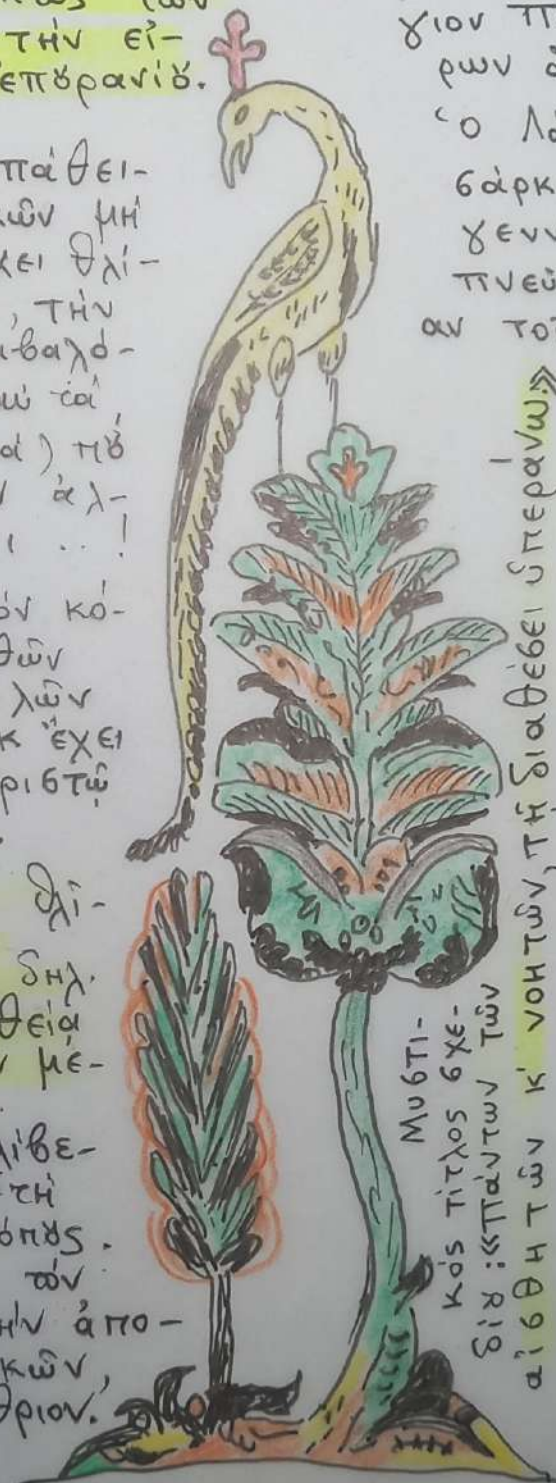 τὴν εἰ-
ἐπȣρανίȣ.
πάθει-
μὴ
θλί-
τὴν
βαλό-
τά,
πȣ
ἀλ-
. . !
κό-
λῶν
ἔχει
ριστῷ
θλί-
δηλ.
θεία
μέ-
λίβε-
τῆ
τόν
ἀπο-
κῶν,
θριον.
γιον
ρων
Ὁ
σάρκ
γενν
πνεῦ
αν το
Μυστι-
κός τίτλος σχε-
δίȣ : «Πάντων τῶν
αἰσθητῶν κ' νοητῶν, τῇ διαθέσει ὑπεράνω.»